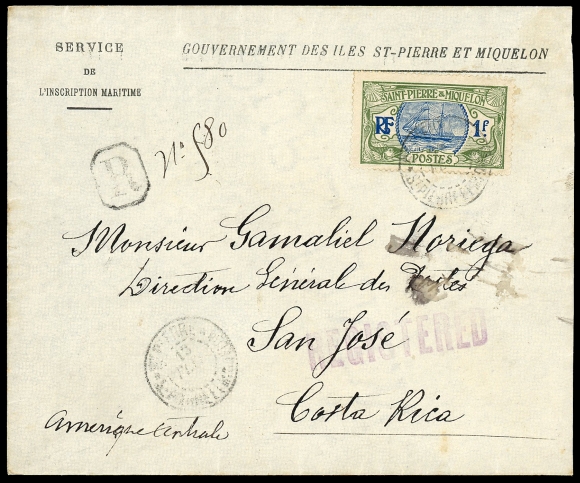 SERVICE
DE
L'INSCRIPTION MARITIME
GOUVERNEMENT DES ILES ST-PIERRE ET MIQUELON
SAINT-PIERRE & MIQUELON
RF 1F.
POSTES
R
No 580
Monsieur Gamaliel Noriega
Direction Générale des Postes
San José
REGISTERED
Costa Rica
Amérique Centrale